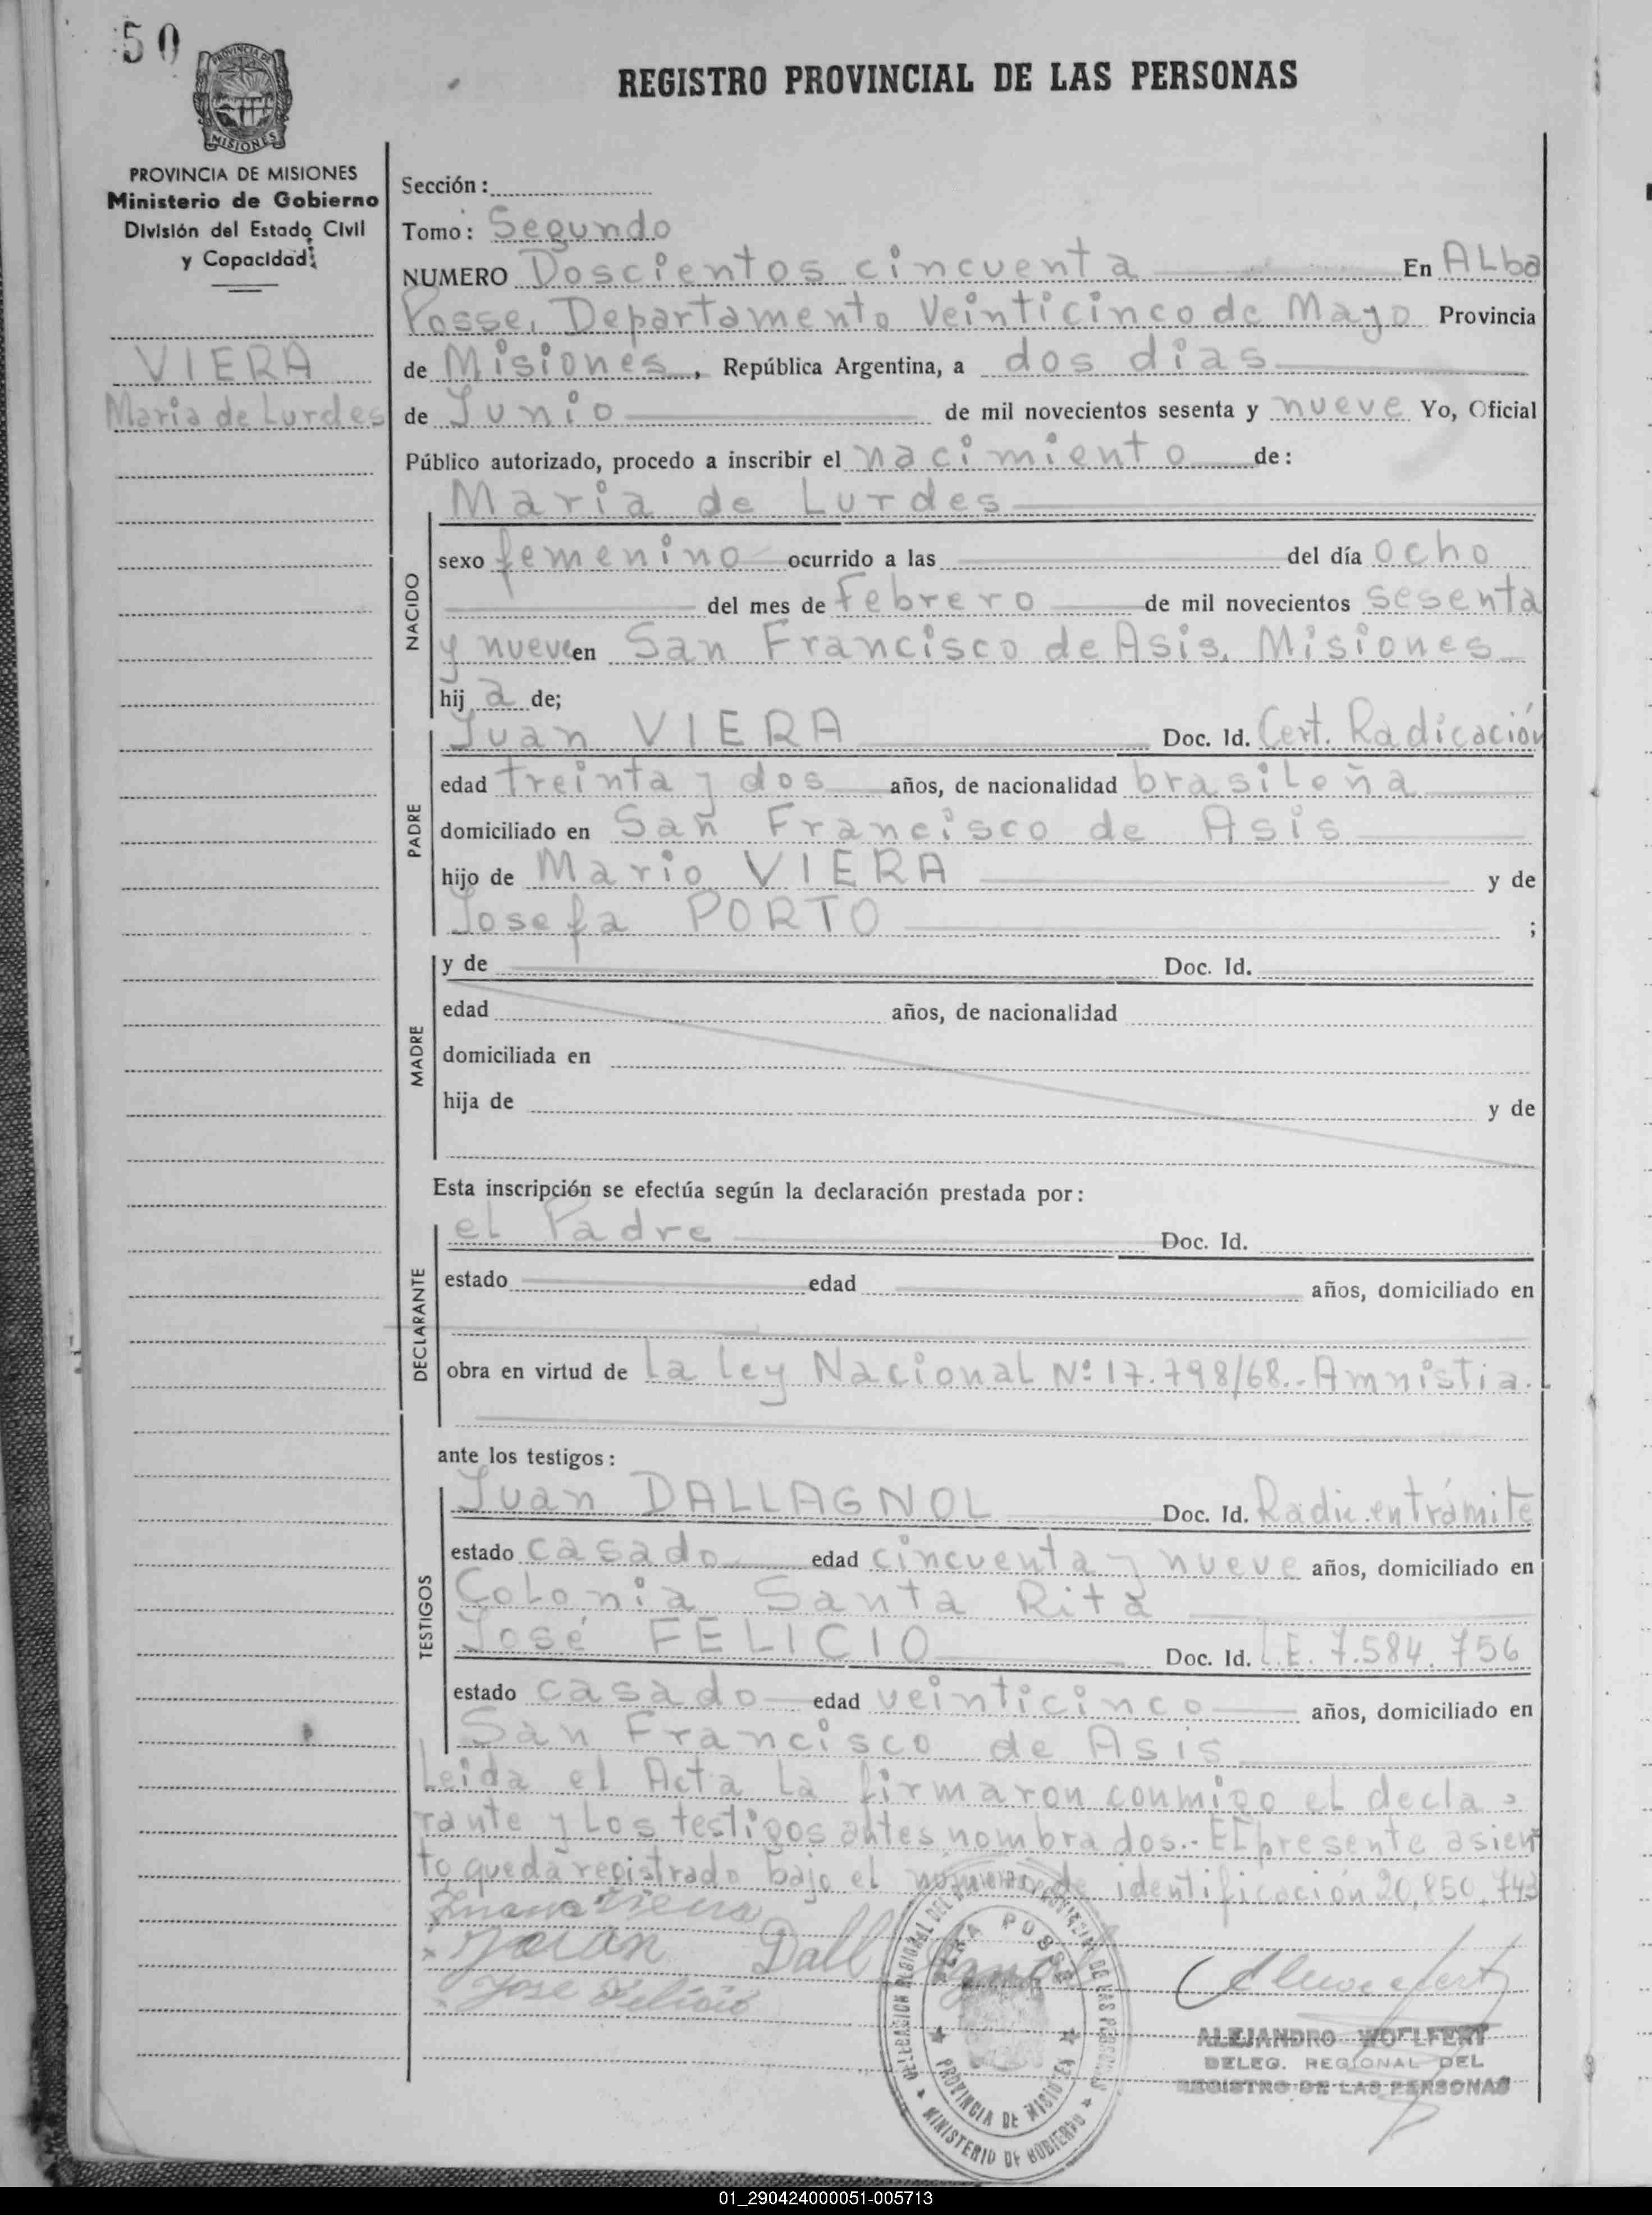 50
PROVINCIA DE
MISIONES
REGISTRO PROVINCIAL DE LAS PERSONAS
PROVINCIA DE MISIONES
Ministerio de Gobierno
División del Estado Civil
y Capacidad
VIERA
Maria de Lurdes
Sección:
Tomo: Segundo
NUMERO Doscientos cincuenta En ALba
Posse, Departamento Veinticinco de Mayo Provincia
de Misiones, República Argentina, a dos dias
de Junio de mil novecientos sesenta y nueve Yo, Oficial
Público autorizado, procedo a inscribir el nacimiento de:
NACIDO
Maria de Lurdes
sexo femenino ocurrido a las del día ocho
del mes de Febrero de mil novecientos sesenta
y nueve en San Francisco de Asis, Misiones
hij a de;
PADRE
Juan VIERA Doc. Id. Cert. Radicación
edad treinta y dos años, de nacionalidad brasileña
domiciliado en San Francisco de Asis
hijo de Mario VIERA y de
Josefa PORTO ;
MADRE
y de Doc. Id.
edad años, de nacionalidad
domiciliada en
hija de y de
Esta inscripción se efectúa según la declaración prestada por:
DECLARANTE
el Padre Doc. Id.
estado edad años, domiciliado en
obra en virtud de la Ley Nacional Nº 17.798/68.- Amnistia.
ante los testigos:
TESTIGOS
Juan DALLAGNOL Doc. Id. Radic. en trámite
estado casado edad cincuenta y nueve años, domiciliado en
Colonia Santa Rita
José FELICIO Doc. Id. L.E. 7.584.756
estado casado edad veinticinco años, domiciliado en
San Francisco de Asis
Leida el Acta la firmaron conmigo el decla
rante y Los testigos antes nombrados.- El presente asien
to queda registrado bajo el número de identificación 20,850,743
Viera
Dall
Jose Felicio
ALBA POSSE
PROVINCIA DE MISIONES
MINISTERIO DE GOBIERNO
ALEJANDRO WOELFERT
DELEG. REGIONAL DEL
REGISTRO DE LAS PERSONAS
01_290424000051-005713